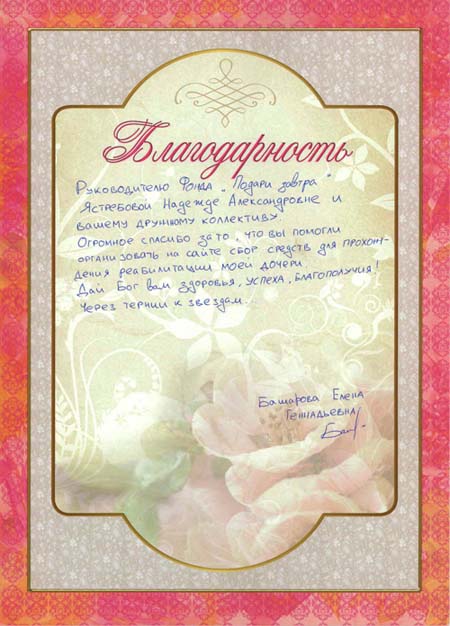 Благодарность
Руководителю Фонда „Подари завтра"
Ястребовой Надежде Александровне и
вашему дружному коллективу.
Огромное спасибо за то, что вы помогли
организовать на сайте сбор средств для прохож-
дения реабилитации моей дочери.
Дай Бог вам здоровья, успеха, благополучия!
Через тернии к звездам...
Башарова Елена
Геннадьевна